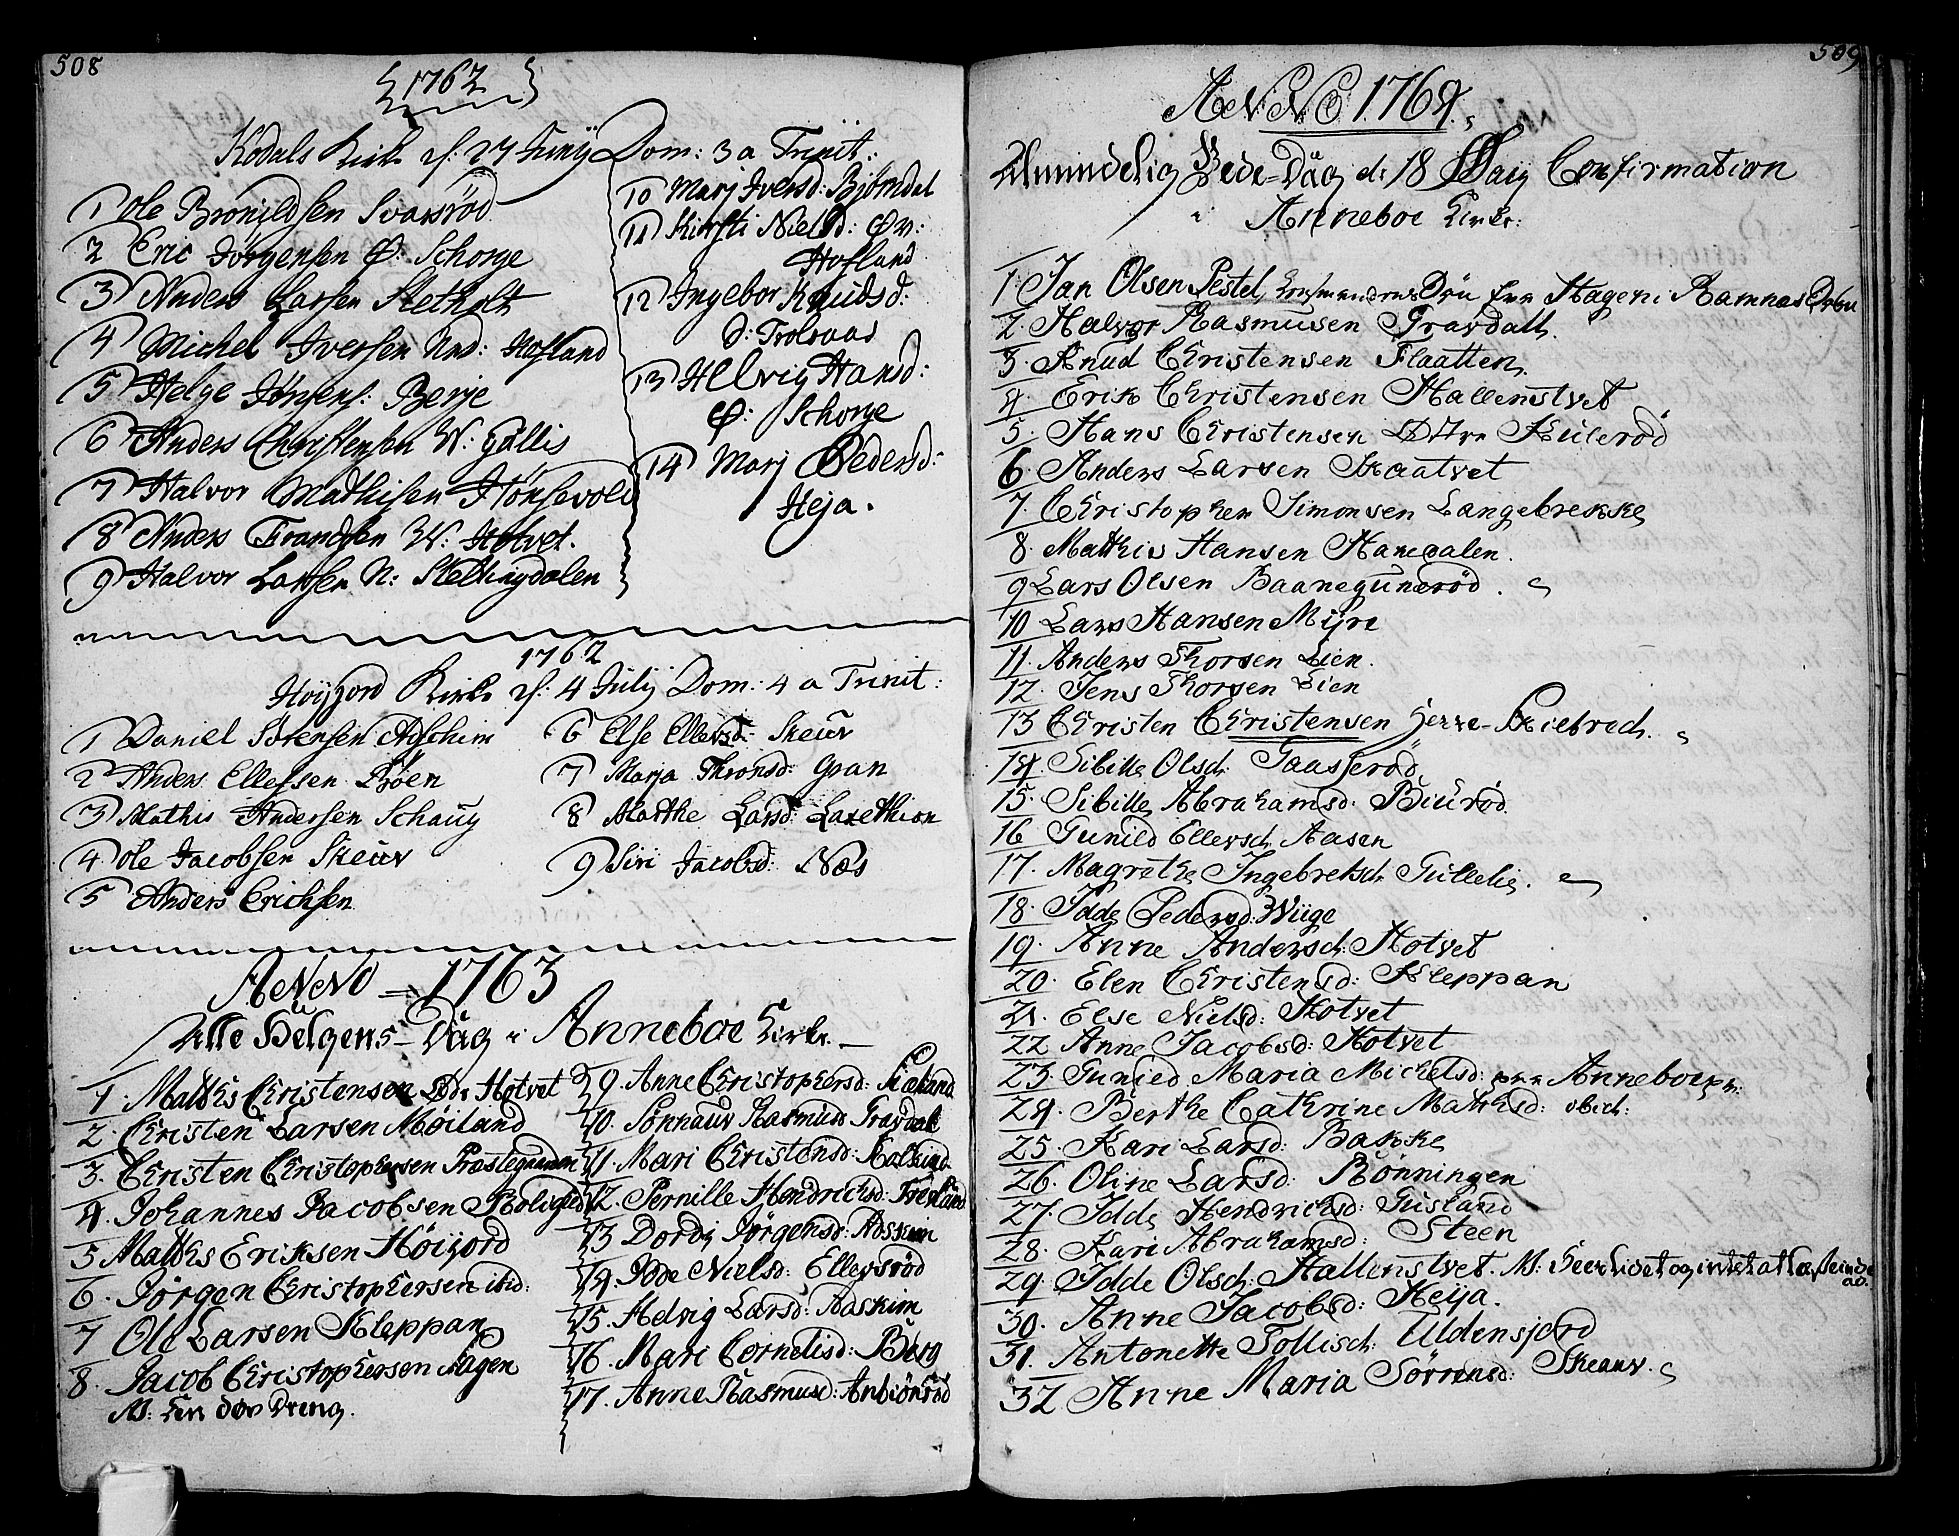 508
1762
Kodals Kirke d: 27 Junij Dom: 3 a Trinit:
1 Ole Bronildsen Svarsrød
2 Eric Jörgensen Ø: Schorge
3 Anders Larsen Stetholt
4 Michel Iversen Nad: Hofland
5 Helge Jónsens: Berje
6 Anders Christensen W: Gallis
7 Halvor Mathisen Hönsevold
8 Anders Frandsen W: Hotvet.
9 Halvor Larsen N: Stellingdalen
10 Marj Iversd: Bjorndal
11 Kirsti Nielsd: Øv:
Hofland
12 Ingebor Knudsd:
Ø: Trolsaas
13 Helvig Hansd:
Ø: Schorge
14 Marj Pedersd:
Heja.
1762
Höijord Kirke d: 4 Julij Dom: 4 a Trinit:
1 Daniel Sörensen Adschim
2 Anders Ellefsen Böen
3 Mathis Andersen Schaug
4 Ole Jacobsen Skeuv
5 Anders Erichsen
6 Else Ellevsd: Skeuv
7 Marja Thronsd: Gran
8 Marthe Larsd:
9 Siri Jacobsd: Næs
ANNO – 1763
Alle Helgens–Dag i Anneboe Kirke.
1. Mathis Christensen Hotvet
2. Christen Larsen Möiland
3. Christen Christophersen Præstegaarden
4. Johannes Jacobsen
5 Mathis Eriksen Höijord
6. Jörgen Christophersen ibid:
7 Ole Larsen Kleppan
8. Jacob Christophersen Hagen
NB: Een döv Dreng.
9. Anne Christophersd:
10. Sönnauv Rasmusd Gravdal
11. Mari Christensd:
12. Pernille Hendrichsd:
13 Dordi Jörgensd: Aaskim
14. Idde Nielsd: Ellevsröd
15. Helvig Larsd: Aaskim
16. Mari Cornelisd: Berg
17. Anne Rasmusd: Anbiönröd
509
ANNO 1764.
Almindelig Bede=Dag d: 18 Maij Confirmation
i Anneboe Kirke:
1. Jan Olsen Pestel, Sön fra Hagen i Ramnæs
2. Halvor Rasmusen Gravdall.
3. Knud Christensen Flaatten
4. Erik Christensen Hallenstvet
5. Hans Christensen Kulerød
6 Anders Larsen Skaatvet
7. Christopher Simonsen Langebrekke
8. Mathis Hansen Hanedalen.
9 Lars Olsen Baanegunerød.
10 Lars Hansen Mijre
11. Anders Thorsen Lien.
12. Jens Thorsen Lien
13 Christen Christensen Herre-Skiebrech.
14. Sibille Olsd: Gaaserød
15. Sibille Abrahamsd: Biurød
16 Gunild Ellevsd: Aasen
17. Magrethe Ingebretsd: Gullelie.
18. Idde Pedersd: Wiige
19. Anne Andersd: Hotvet
20. Elen Christensd: Kleppan
21. Else Nielsd: Hotvet
22 Anne Jacobsd: Hotvet
23. Gunied Maria Michelsd: Anneboe
24. Berthe Cathrine Mathisd: ibid:
25. Kari Larsd: Bakke
26. Oline Larsd: Rönningen
27. Idde Hendrichsd: Gisland
28. Kari Abrahamsd: Steen
29. Idde Olsd: Hallenstvet. NB:
30. Anne Jacobsd: Heija.
31. Antonette Tollisd: Uldensjord
32 Anne Maria Sörrensd: Skeauv.